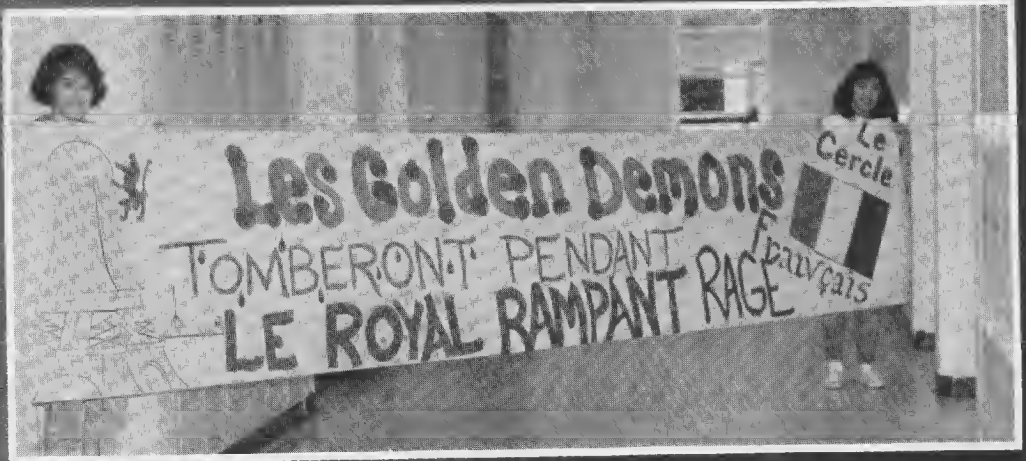 Les Golden Demons
TOMBERONT PENDANT
LE ROYAL RAMPANT RAGE
Le
Cercle
Français